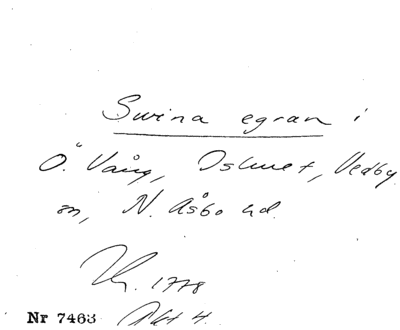 Svina egran i
Ö. Vång, Oshult, Vedby
sn, N. Åsbo hd.
1778
Nr 7463 Akt 4.